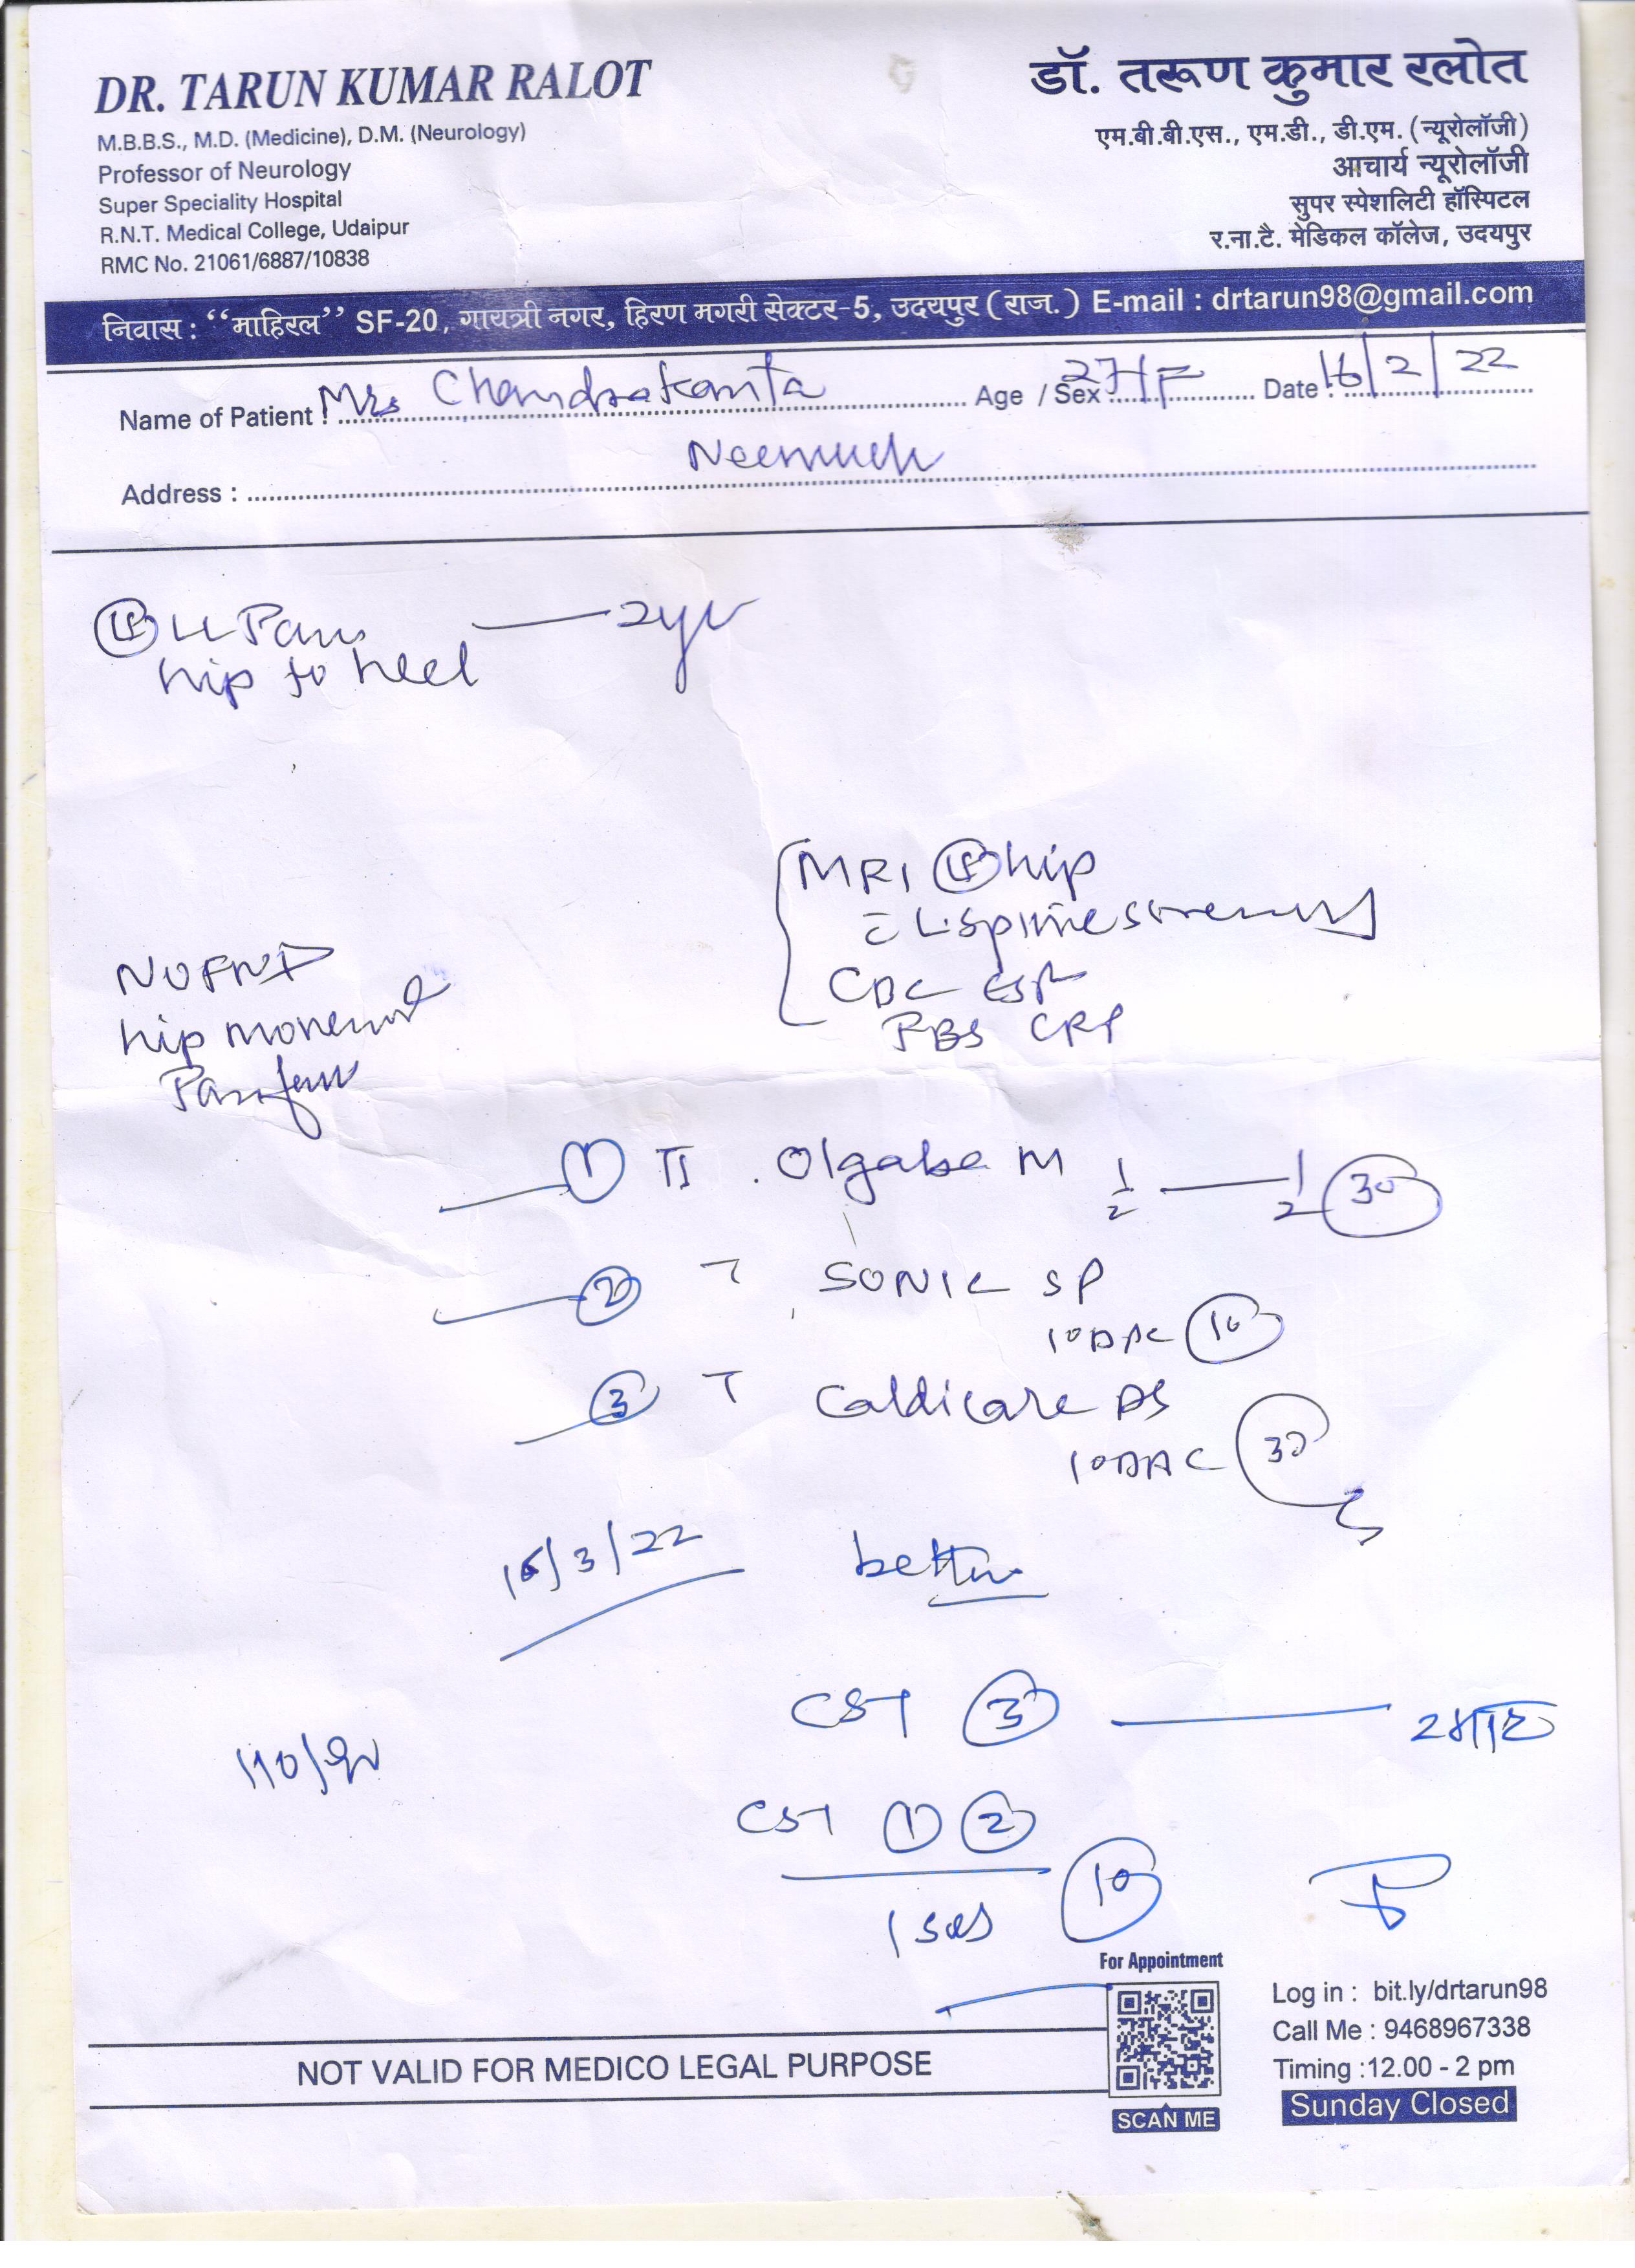 DR. TARUN KUMAR RALOT
M.B.B.S., M.D. (Medicine), D.M. (Neurology)
Professor of Neurology
Super Speciality Hospital
R.N.T. Medical College, Udaipur
RMC No. 21061/6887/10838
डॉ. तरूण कुमार रलोत
एम.बी.बी.एस., एम.डी., डी.एम. (न्यूरोलॉजी)
आचार्य न्यूरोलॉजी
सुपर स्पेशलिटी हॉस्पिटल
र.ना.टै. मेडिकल कॉलेज, उदयपुर
निवास : “माहिरल” SF-20, गायत्री नगर, हिरण मगरी सेक्टर-5, उदयपुर (राज.) E-mail : drtarun98@gmail.com
Name of Patient : Mrs Chandrakanta Age / Sex : 27/F Date : 16/2/22
Address : Neemuch
LL Pain — 2yr
hip to heel
MRI hip
L-spine screening
CBC ESR
RBS CRP
NOFND
hip movement
Painful
① T . Olgaba M 1/2 — 1/2 30
② T SONIC SP
10DAC 10
③ T Caldicare DS
10DAC 30
15/3/22 better
CST ③ — 2 माह
110/90
CST ① ②
1 SOS 10
For Appointment
SCAN ME
Log in : bit.ly/drtarun98
Call Me : 9468967338
Timing :12.00 - 2 pm
Sunday Closed
NOT VALID FOR MEDICO LEGAL PURPOSE